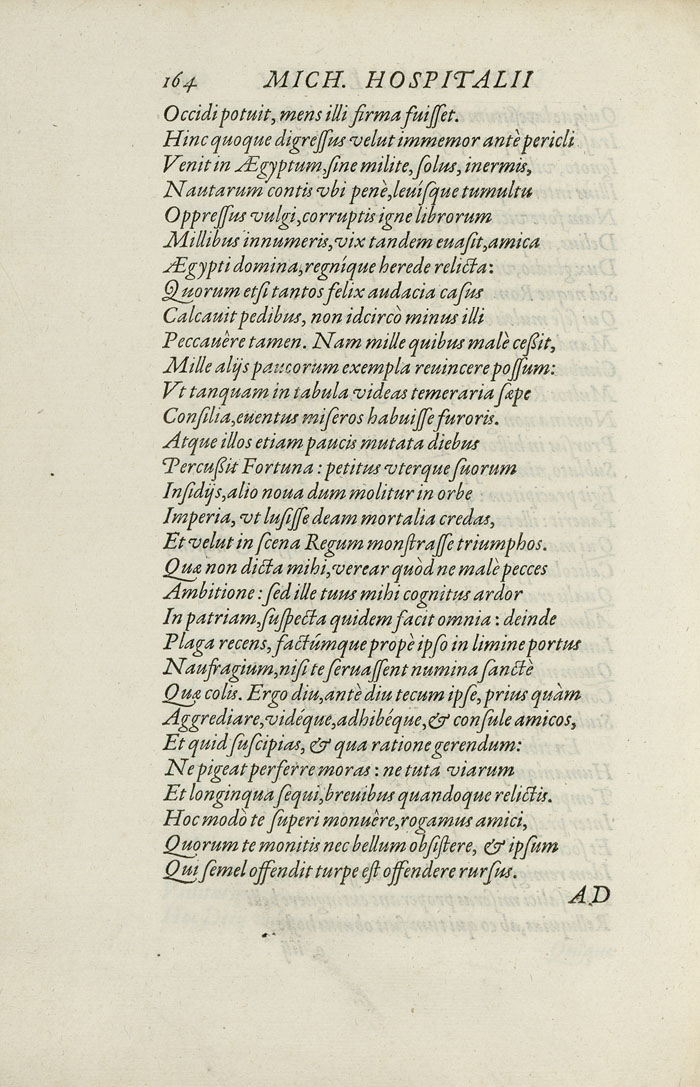 164 MICH. HOSPITALII
Occidi potuit, mens illi firma fuiſſet.
Hinc quoque digreſſus velut immemor antè pericli
Venit in Ægyptum, ſine milite, ſolus, inermis,
Nautarum contis vbi penè, leuiſque tumultu
Oppreſſus vulgi, corruptis igne librorum
Millibus innumeris, vix tandem euaſit, amica
Ægypti domina, regníque herede relicta:
Quorum etſi tantos felix audacia caſus
Calcauit pedibus, non idcircò minus illi
Peccauêre tamen. Nam mille quibus malè ceßit,
Mille alijs paucorum exempla reuincere poſſum:
Vt tanquam in tabula videas temeraria ſæpe
Conſilia, euentus miſeros habuiſſe furoris.
Atque illos etiam paucis mutata diebus
Percußit Fortuna: petitus vterque ſuorum
Inſidijs, alio noua dum molitur in orbe
Imperia, vt luſiſſe deam mortalia credas,
Et velut in ſcena Regum monſtraſſe triumphos.
Quæ non dicta mihi, verear quòd ne malè pecces
Ambitione: ſed ille tuus mihi cognitus ardor
In patriam, ſuſpecta quidem facit omnia: deinde
Plaga recens, factúmque propè ipſo in limine portus
Naufragium, niſi te ſeruaſſent numina ſanctè
Quæ colis. Ergo diu, antè diu tecum ipſe, prius quàm
Aggrediare, vidéque, adhibéque, & conſule amicos,
Et quid ſuſcipias, & qua ratione gerendum:
Ne pigeat perferre moras: ne tuta viarum
Et longinqua ſequi, breuibus quandoque relictis.
Hoc modò te ſuperi monuêre, rogamus amici,
Quorum te monitis nec bellum obſiſtere, & ipſum
Qui ſemel offendit turpe eſt offendere rurſus.
AD